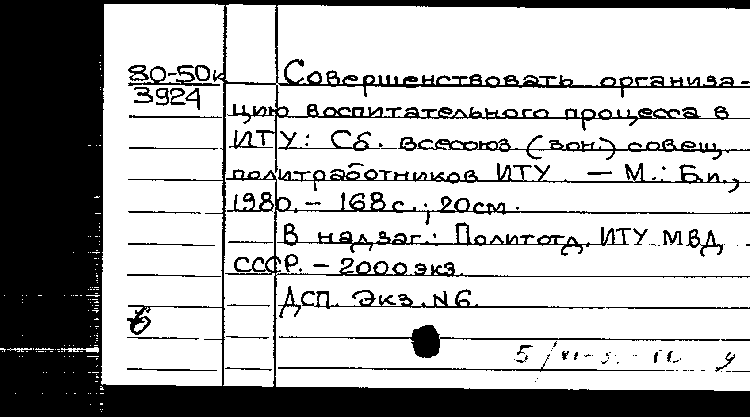 80-50к
3924
Совершенствовать организа-
цию воспитательного процесса в
ИТУ: Сб. всесоюз (зон.) совещ.
политработников ИТУ. — М.: Б.и.,
1980. – 168 с.; 20 см.
В надзаг.: Политотд. ИТУ МВД
СССР. – 2000 экз.
ДСП. Экз. N6.
б